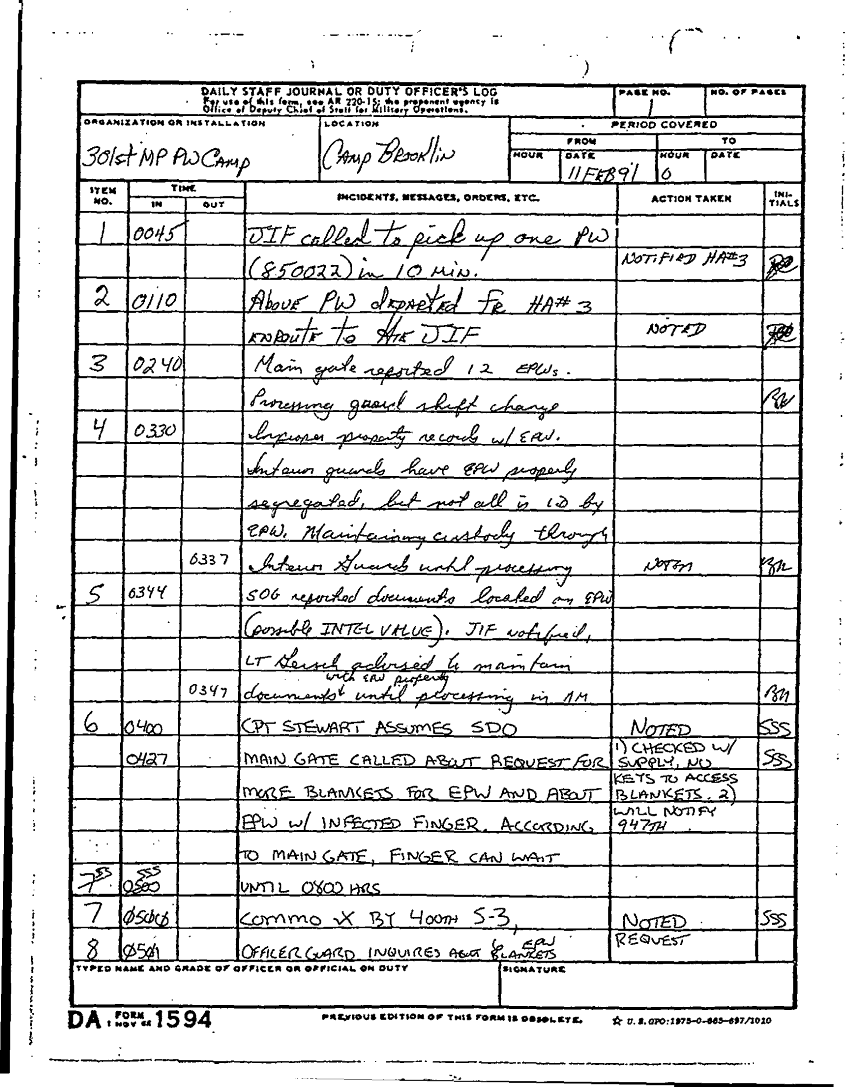 DAILY STAFF JOURNAL OR DUTY OFFICER'S LOG
For use of this form, see AR 220-15; the proponent agency is
Office of Deputy Chief of Staff for Military Operations.
PAGE NO.
1
NO. OF PAGES
ORGANIZATION OR INSTALLATION
301st MP PW CAMP
LOCATION
CAMP BROOKLIN
PERIOD COVERED
FROM
TO
HOUR
DATE
11 FEB 91
HOUR
0
DATE
ITEM NO.
TIME
IN
OUT
INCIDENTS, MESSAGES, ORDERS, ETC.
ACTION TAKEN
INI-TIALS
1 0045 JIF called to pick up one PW
(850022) in 10 MIN. NOTIFIED HA#3
2 0110 ABOVE PW DEPARTED FR HA# 3
ENROUTE TO the JIF NOTED
3 0240 Main gate reported 12 EPWs.
Processing guard shift change
4 0330 Improper property records w/ EPW.
Interior guards have EPW property
segregated, but not all is ID by
EPW. Maintaining custody through
0337 Interior Guards until processing NOTED
5 0344 SOG reported documents located on EPW
(possible INTEL VALUE). JIF notified,
LT advised to maintain
with EPW property
0347 documents until processing in AM
6 0400 CPT STEWART ASSUMES SDO NOTED SSS
0427 MAIN GATE CALLED ABOUT REQUEST FOR 1) CHECKED W/ SUPPLY, NO SSS
MORE BLANKETS FOR EPW AND ABOUT KEYS TO ACCESS BLANKETS. 2)
EPW W/ INFECTED FINGER. ACCORDING WILL NOTIFY 947TH
TO MAIN GATE, FINGER CAN WAIT
7 SSS 0500 SSS UNTIL 0800 HRS
7 0500 COMMO X BY 400TH S-3, NOTED SSS
8 0501 OFFICER GUARD INQUIRES ABOUT EPW BLANKETS REQUEST
TYPED NAME AND GRADE OF OFFICER OR OFFICIAL ON DUTY
SIGNATURE
DA FORM 1 NOV 62 1594
PREVIOUS EDITION OF THIS FORM IS OBSOLETE.
☆ U.S. GPO: 1975-0-665-697/1010